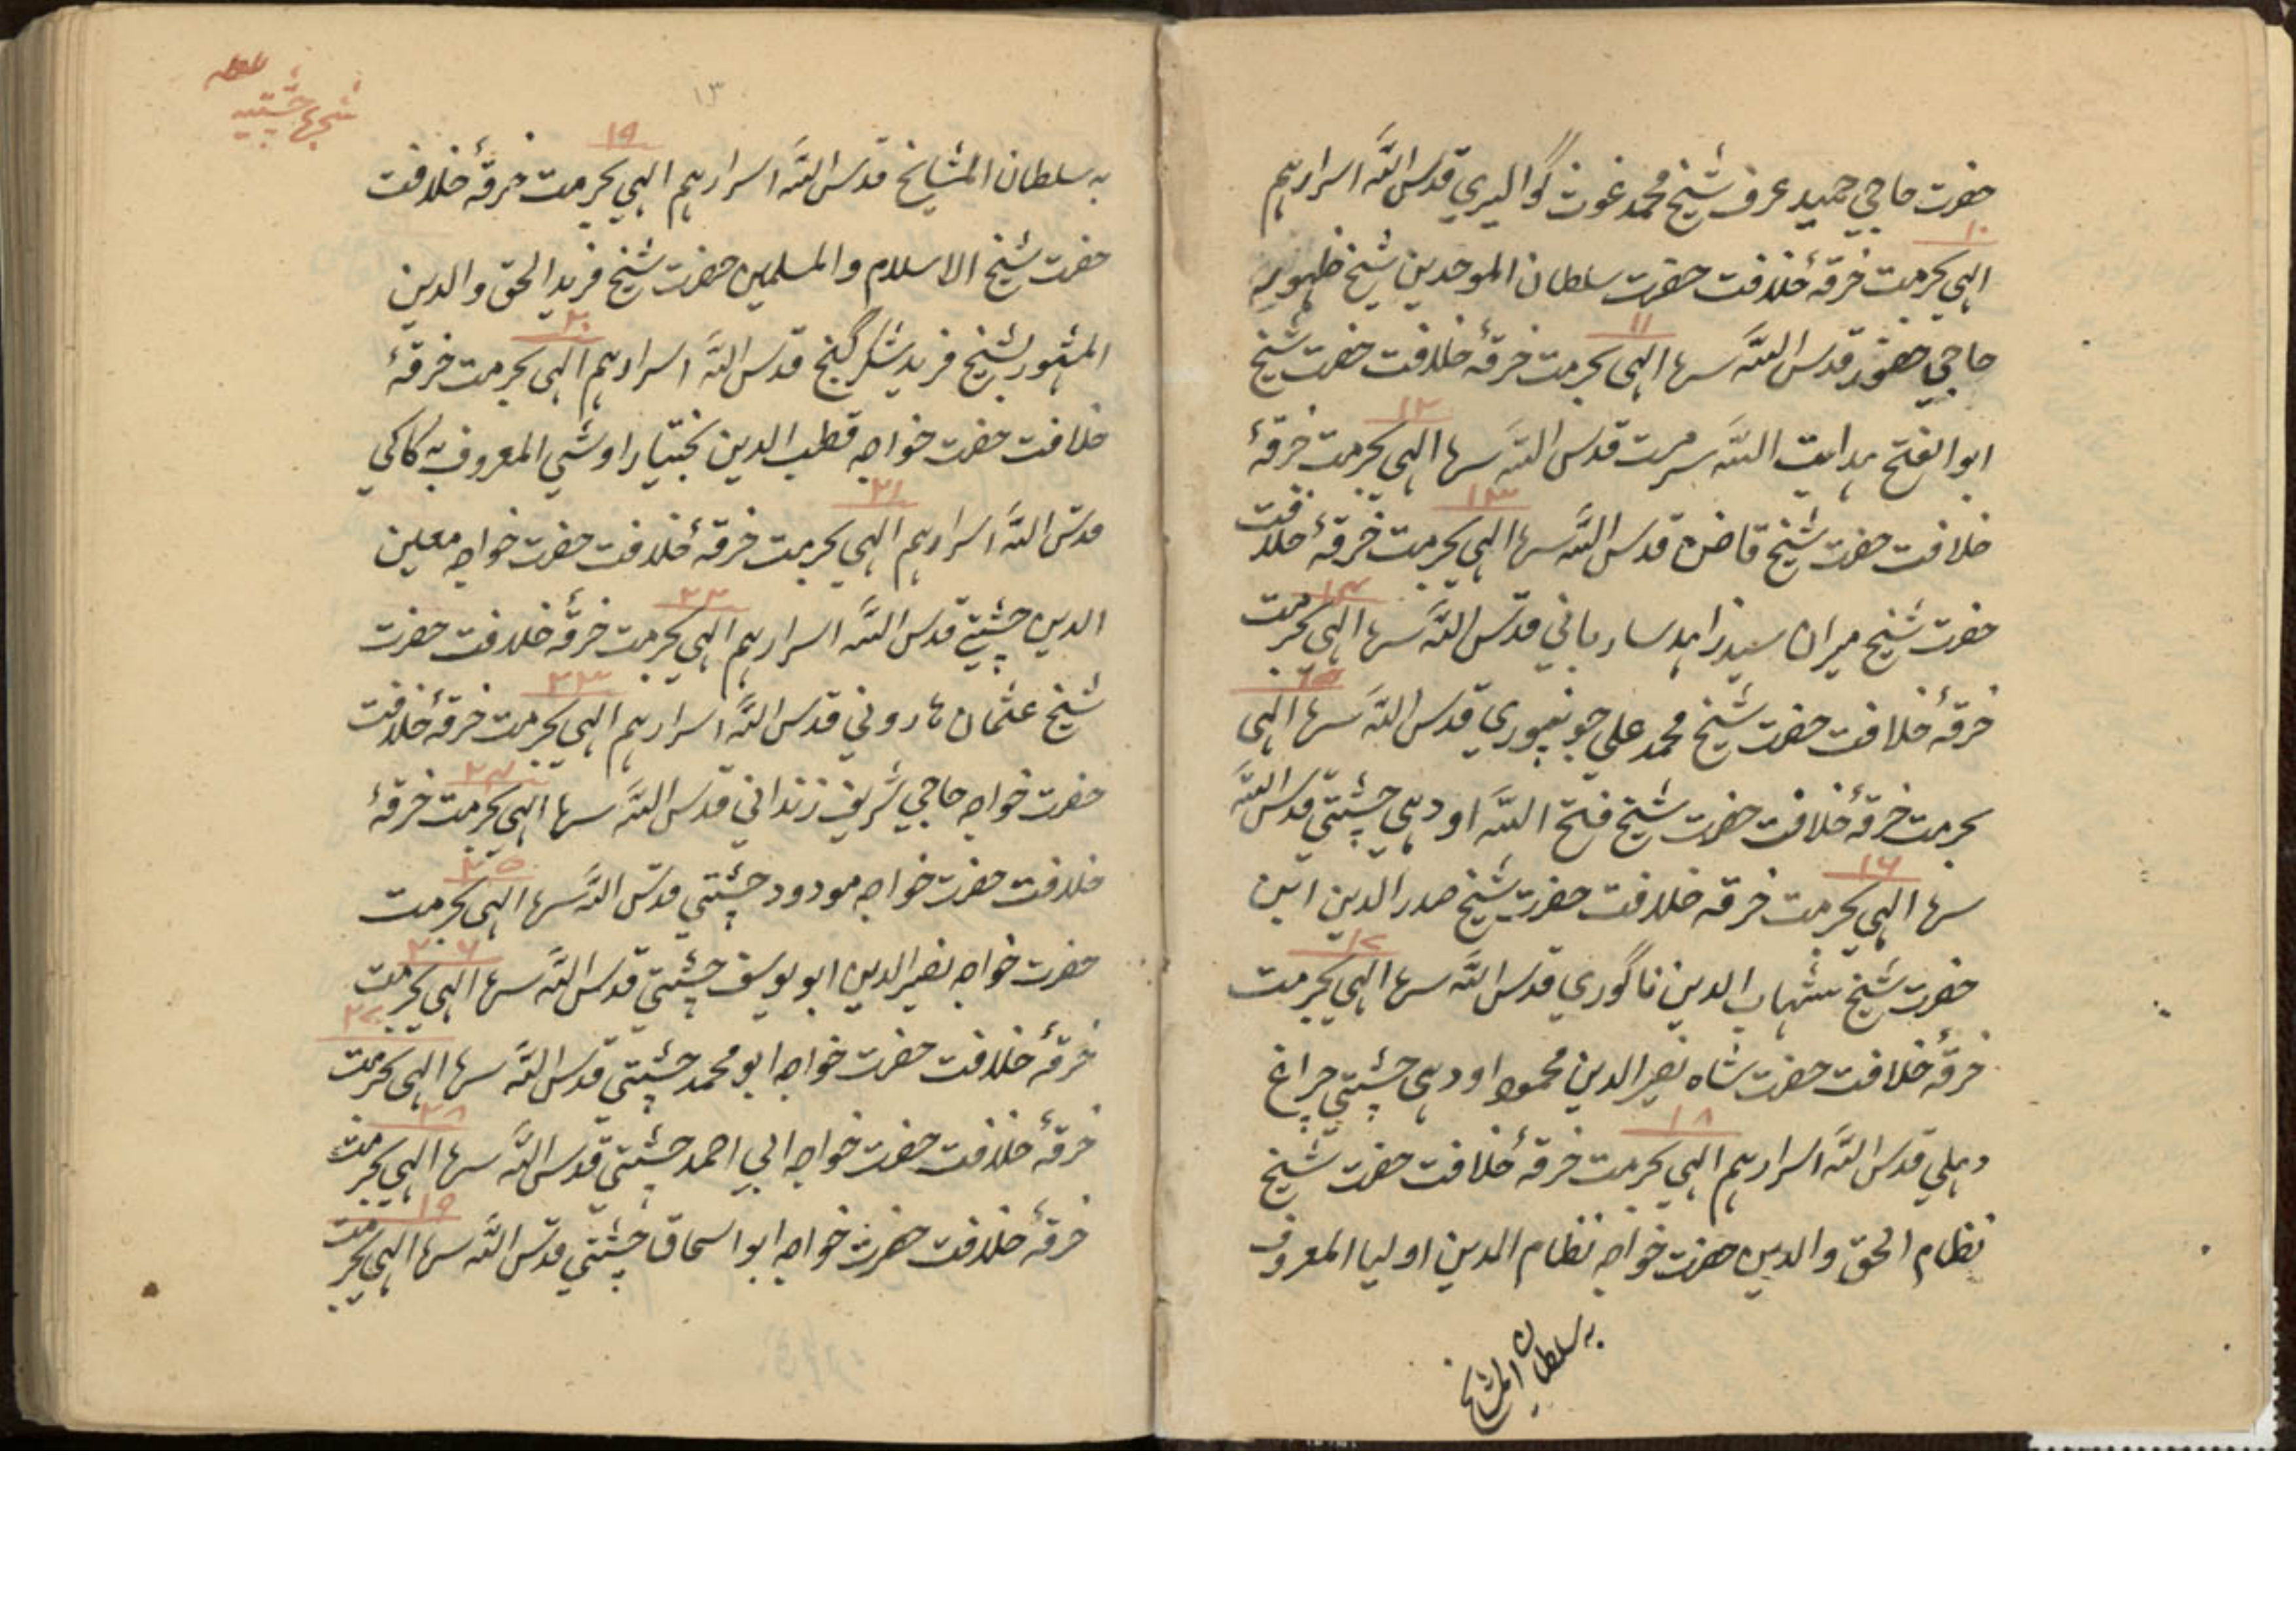 حضرت حاجي حميد عرف شيخ محمد غوث گواليري قدس الله اسرارهم
١٠
الهي بحرمت خرقهٔ خلافت حضرت سلطان الموحدين شيخ ظهور
١١
حاجي حضور قدس الله سرها الهي بحرمت خرقهٔ خلافت حضرت شيخ
١٢
ابو الفتح هدايت الله سرمت قدس الله سرها الهي بحرمت خرقهٔ
١٣
خلافت حضرت شيخ قاضن قدس الله سرها الهي بحرمت خرقهٔ خلافت
١٤
حضرت شيخ ميران سيد زاهد قدس الله سرها الهي بحرمت
١٥
خرقهٔ خلافت حضرت شيخ محمد علي جونپوري قدس الله سرها الهي
بحرمت خرقهٔ خلافت حضرت شيخ فتح الله اودهي چشتي قدس الله
١٦
سرها الهي بحرمت خرقه خلافت حضرت شيخ صدر الدين ابن
١٧
حضرت شيخ شهاب الدين ناگوري قدس الله سرها الهي بحرمت
خرقهٔ خلافت حضرت شاه نصير الدين محمود اودهي چشتي چراغ
١٨
دهلي قدس الله اسرارهم الهي بحرمت خرقهٔ خلافت حضرت شيخ
نظام الحق والدين حضرت خواجه نظام الدين اوليا المعروف
به سلطان المشايخ
شجرها چشتيه
١٣
١٩
به سلطان المشايخ قدس الله اسرارهم الهي بحرمت خرقهٔ خلافت
حضرت شيخ الاسلام والمسلمين حضرت شيخ فريد الحق والدين
٢٠
المشهور بشيخ فريد شكر گنج قدس الله اسرارهم الهي بحرمت خرقهٔ
خلافت حضرت خواجه قطب الدين بختيار اوشي المعروف به كاكي
٢١
قدس الله اسرارهم الهي بحرمت خرقهٔ خلافت حضرت خواجه معين
٢٢
الدين چشتي قدس الله اسرارهم الهي بحرمت خرقهٔ خلافت حضرت
٢٣
شيخ عثمان هاروني قدس الله اسرارهم الهي بحرمت خرقهٔ خلافت
٢٤
حضرت خواجه حاجي شريف زنداني قدس الله سرها الهي بحرمت خرقهٔ
٢٥
خلافت حضرت خواجه مودود چشتي قدس الله سرها الهي بحرمت
٢٦
حضرت خواجه نصير الدين ابو يوسف چشتي قدس الله سرها الهي بحرمت
٢٧
خرقهٔ خلافت حضرت خواجه ابو محمد چشتي قدس الله سرها الهي بحرمت
٢٨
خرقهٔ خلافت حضرت خواجه ابي احمد چشتي قدس الله سرها الهي بحرمت
١٩
خرقهٔ خلافت حضرت خواجه ابو اسحاق چشتي قدس الله سرها الهي بحرمت